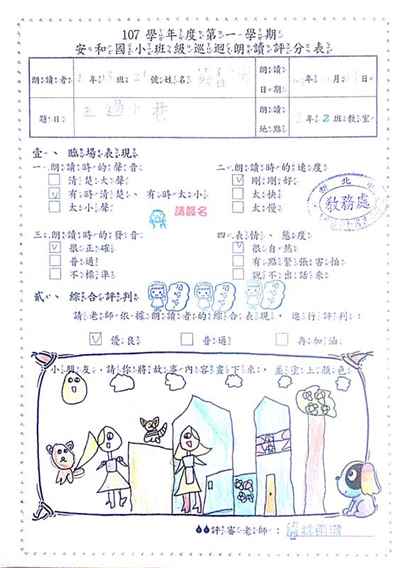 107學年度第一學期
安和國小班級巡迴朗讀評分表
朗讀者 年 班 21 號姓名
朗讀日期
題目
朗讀地點 2年2班教室
壹、臨場表現
一、朗讀時的聲音
清楚大聲
有時清楚、有時太小
太小聲
請簽名
二、朗讀時的速度
剛剛好
太快
太慢
教務處
三、朗讀時的發音
很正確
普通
不標準
四、表情、態度
很自然
有點緊張害怕
說不出話來
貳、綜合評判
請老師依據朗讀者的綜合表現，進行評判：
優良
普通
再加油
小朋友，請你將故事內容畫下來，並塗上顏色
評審老師：